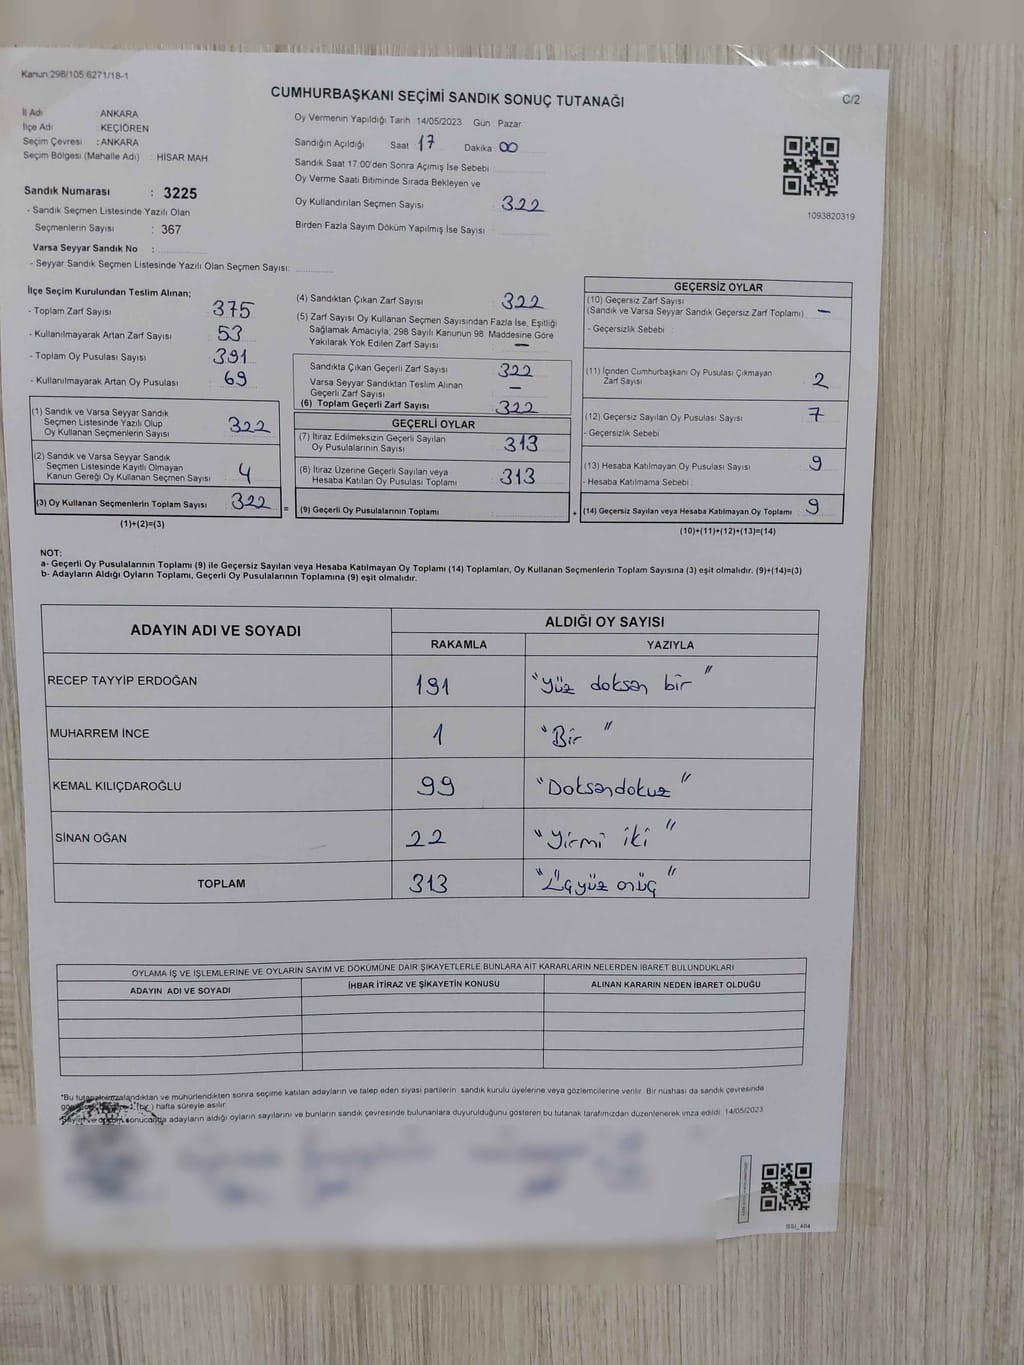 Kanun 298/105 6271/18-1
CUMHURBAŞKANI SEÇİMİ SANDIK SONUÇ TUTANAĞI
C/2
İl Adı : ANKARA
İlçe Adı : KEÇİÖREN
Seçim Çevresi : ANKARA
Seçim Bölgesi (Mahalle Adı) : HİSAR MAH
Sandık Numarası : 3225
- Sandık Seçmen Listesinde Yazılı Olan
Seçmenlerin Sayısı : 367
Varsa Seyyar Sandık No :
- Seyyar Sandık Seçmen Listesinde Yazılı Olan Seçmen Sayısı:
Oy Vermenin Yapıldığı Tarih : 14/05/2023 Gün : Pazar
Sandığın Açıldığı Saat 17 Dakika 00
Sandık Saat 17.00'den Sonra Açımış İse Sebebi
Oy Verme Saati Bitiminde Sırada Bekleyen ve
Oy Kullandırılan Seçmen Sayısı 322
Birden Fazla Sayım Döküm Yapılmış İse Sayısı
1093820319
İlçe Seçim Kurulundan Teslim Alınan;
- Toplam Zarf Sayısı 375
- Kullanılmayarak Artan Zarf Sayısı 53
- Toplam Oy Pusulası Sayısı 391
- Kullanılmayarak Artan Oy Pusulası 69
(1) Sandık ve Varsa Seyyar Sandık
Seçmen Listesinde Yazılı Olup
Oy Kullanan Seçmenlerin Sayısı 322
(2) Sandık ve Varsa Seyyar Sandık
Seçmen Listesinde Kayıtlı Olmayan
Kanun Gereği Oy Kullanan Seçmen Sayısı 4
(3) Oy Kullanan Seçmenlerin Toplam Sayısı 322 =
(1)+(2)=(3)
(4) Sandıktan Çıkan Zarf Sayısı 322
(5) Zarf Sayısı Oy Kullanan Seçmen Sayısından Fazla İse, Eşitliği
Sağlamak Amacıyla, 298 Sayılı Kanunun 98. Maddesine Göre
Yakılarak Yok Edilen Zarf Sayısı —
Sandıkta Çıkan Geçerli Zarf Sayısı 322
Varsa Seyyar Sandıktan Teslim Alınan
Geçerli Zarf Sayısı —
(6) Toplam Geçerli Zarf Sayısı 322
GEÇERLİ OYLAR
(7) İtiraz Edilmeksizin Geçerli Sayılan
Oy Pusulalarının Sayısı 313
(8) İtiraz Üzerine Geçerli Sayılan veya
Hesaba Katılan Oy Pusulası Toplamı 313
(9) Geçerli Oy Pusulalarının Toplamı +
GEÇERSİZ OYLAR
(10) Geçersiz Zarf Sayısı
(Sandık ve Varsa Seyyar Sandık Geçersiz Zarf Toplamı) —
- Geçersizlik Sebebi :
(11) İçinden Cumhurbaşkanı Oy Pusulası Çıkmayan
Zarf Sayısı 2
(12) Geçersiz Sayılan Oy Pusulası Sayısı 7
- Geçersizlik Sebebi
(13) Hesaba Katılmayan Oy Pusulası Sayısı 9
- Hesaba Katılmama Sebebi
(14) Geçersiz Sayılan veya Hesaba Katılmayan Oy Toplamı 9
(10)+(11)+(12)+(13)=(14)
NOT:
a- Geçerli Oy Pusulalarının Toplamı (9) ile Geçersiz Sayılan veya Hesaba Katılmayan Oy Toplamı (14) Toplamları, Oy Kullanan Seçmenlerin Toplam Sayısına (3) eşit olmalıdır. (9)+(14)=(3)
b- Adayların Aldığı Oyların Toplamı, Geçerli Oy Pusulalarının Toplamına (9) eşit olmalıdır.
ADAYIN ADI VE SOYADI
ALDIĞI OY SAYISI
RAKAMLA YAZIYLA
RECEP TAYYİP ERDOĞAN 191 "Yüz doksan bir"
MUHARREM İNCE 1 "Bir"
KEMAL KILIÇDAROĞLU 99 "Doksandokuz"
SİNAN OĞAN 22 "Yirmi iki"
TOPLAM 313 "Üçyüz onüç"
OYLAMA İŞ VE İŞLEMLERİNE VE OYLARIN SAYIM VE DÖKÜMÜNE DAİR ŞİKAYETLERLE BUNLARA AİT KARARLARIN NELERDEN İBARET BULUNDUKLARI
ADAYIN ADI VE SOYADI İHBAR İTİRAZ VE ŞİKAYETİN KONUSU ALINAN KARARIN NEDEN İBARET OLDUĞU
*Bu tutanak imzalandıktan ve mühürlendikten sonra seçime katılan adayların ve talep eden siyasi partilerin sandık kurulu üyelerine veya gözlemcilerine verilir. Bir nüshası da sandık çevresinde
1 (bir) hafta süreyle asılır
sonucunda adayların aldığı oyların sayılarını ve bunların sandık çevresinde bulunanlara duyurulduğunu gösteren bu tutanak tarafımızdan düzenlenerek imza edildi. 14/05/2023
SSI_404